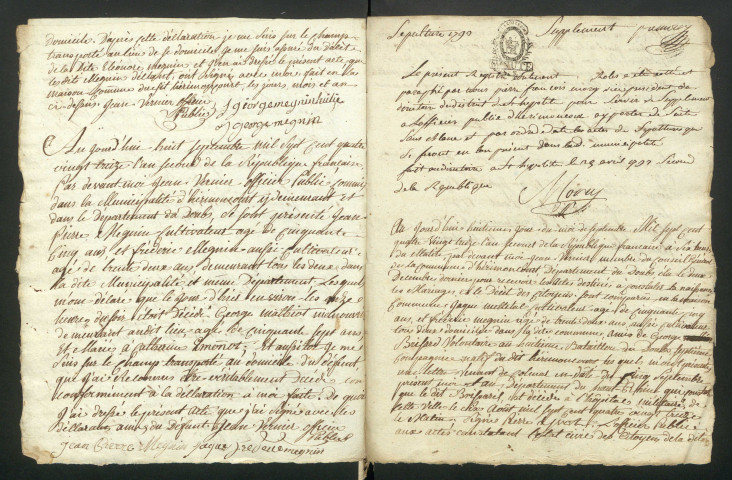 domicile. D'après cette déclaration je me suis sur le champ
transporté au lieu de se domicile, je me suis assuré du Décès
de la dite Eleonore megnin et j'en ai dressé le présent acte que
les dits Megnin déclarant, ont signé avec moi, fait en la
maison Commune du dit herimoncourt les jours, mois et an
ci-dessus. Jean Vernier officier
Public j george megnin
j george megnin
Au jourd'hui huit Septembre mil Sept Cent quatre
vingt treize l'an Second de la République française
Par devant moi Jean Vernier officier Public
dans la Municipalité d'hérimoncourt y demeurant et
dans le Departement du doubs, se sont présenté Jean
Pierre Megnin Cultivateur age de Cinquante
Cinq ans, et fréderic Megnin aussi Cultivateur
age de trente deux ans demeurant tous les deux dans
la dite Municipalité et meme Departement, Lesquels
mont déclaré que le jour d'hier environ les onze
heures du soir étoit Décédé George mathiot
demeurant audit lieu age de Cinquante Sept ans
et Mariés à Catherine . et aussitot je me
Suis sur le champ transporté au domicile du défunt
que j'ai Reconnus être véritablement Décédé
conformément à la déclaration a moi faite. De quoi
j'ai dressé le present acte que j'ai signé avec les
Déclarants amis du Defunt Jean Vernier officier
Public
Jean Pierre Megnin Jaque frederic megnin
Sepulture 1793 Supplement
Le présent Registre Contenant Roles a été cotté et
paraphé par nous pierre francois president du
directoire du district de St hypolite pour Servir de Supplement
a Lofficier public d'herimoncourt apporter de Suite
Sans blanc et par ordre de date les actes de Sepulture que
Se feront en Son présent dans la ditte municipalité
fait au directoire a St hypolite le 23 avril 1793 Second
de la Republique
Au jourd'hui huitieme jour du mois de Septembre Mil Sept Cent
quatre vingt treize l'an Second de la République française à Six heures
du Matin, par devant moi Jean Vernier membre du conseil General
de la Commune d'hérimoncourt département du Doubs élu le deux
Decembre dernier pour recevoir les actes destinés a constater la naissance
les Mariages et le Décès des Citoyens sont comparus en la maison
Commune Jaque mathiot Cultivateur age de Cinquante Cinq
ans, et frederic megnin age de trente deux ans aussi Cultivateur
tous deux domiciliés dans la dite commune, amis de George
Volontaire au huitieme Bataillon du Doubs septieme
Compagnie natif du dit herimoncourt lesquels m'ont présenté
une lettre venant de Colmar en date du Cinq Septembre
présent mois et au département du haut Rhin qui portoit
que le dit est décédé a l'hôpital militaire de
cette ville le dix Aout mil Sept Cent quatre vingt treize
le Matin, signé Pierre officier Public
aux actes constatant l'état civil des Citoyens de la dite